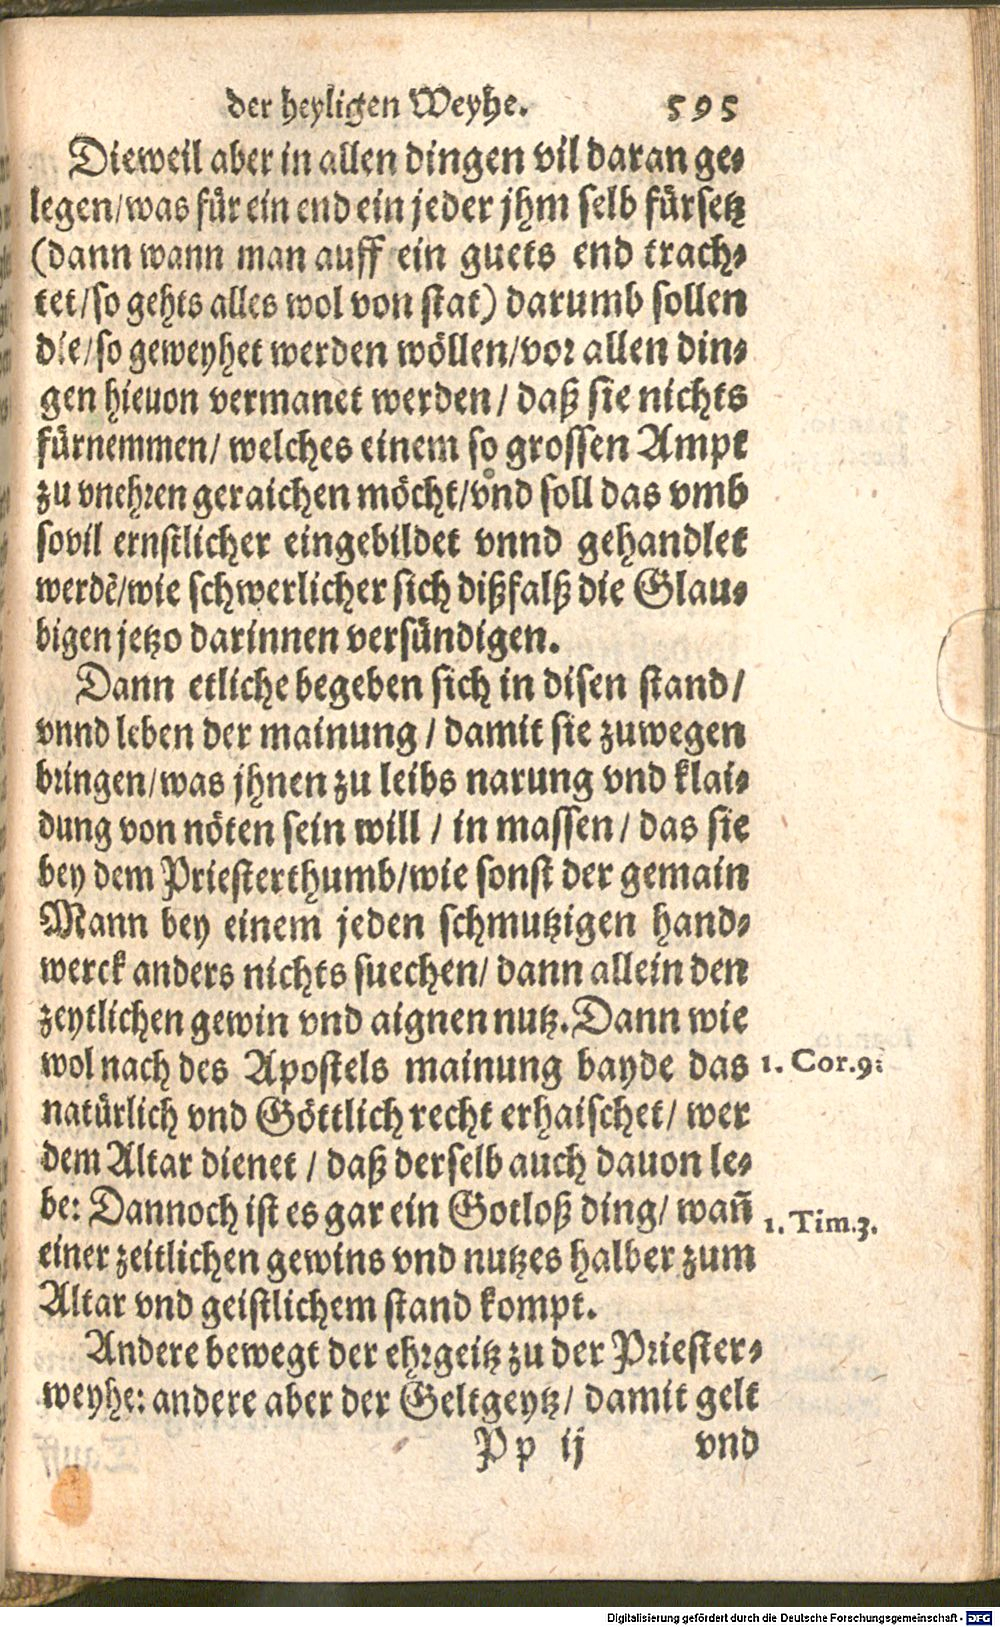 der heyligen Weyhe. 595
Dieweil aber in allen dingen vil daran ge⸗
legen/was für ein end ein jeder jhm selb fürsetz
(dann wann man auff ein guets end trach⸗
tet/so gehts alles wol von stat) darumb sollen
die/so geweyhet werden wöllen/vor allen din⸗
gen hieuon vermanet werden/ daß sie nichts
fürnemmen/ welches einem so grossen Ampt
zu vnehren geraichen möcht/vnd soll das vmb
sovil ernstlicher eingebildet vnnd gehandlet
werdē/wie schwerlicher sich dißfalß die Glau⸗
bigen jetzo darinnen versündigen.
Dann etliche begeben sich in disen stand/
vnnd leben der mainung / damit sie zuwegen
bringen/was jhnen zu leibs narung vnd klai⸗
dung von nöten sein will / in massen/ das sie
bey dem Priesterthumb/wie sonst der gemain
Mann bey einem jeden schmutzigen hand⸗
werck anders nichts suechen/ dann allein den
zeytlichen gewin vnd aignen nutz. Dann wie
wol nach des Apostels mainung bayde das 1. Cor.9:
natürlich vnd Göttlich recht erhaischet/ wer
dem Altar dienet / daß derselb auch dauon le⸗
be: Dannoch ist es gar ein Gotloß ding/ wañ 1. Tim.3.
einer zeitlichen gewins vnd nutzes halber zum
Altar vnd geistlichem stand kompt.
Andere bewegt der ehrgeitz zu der Priester⸗
weyhe: andere aber der Geltgeytz/ damit gelt
Pp ij vnd
Digitalisierung gefördert durch die Deutsche Forschungsgemeinschaft - DFG